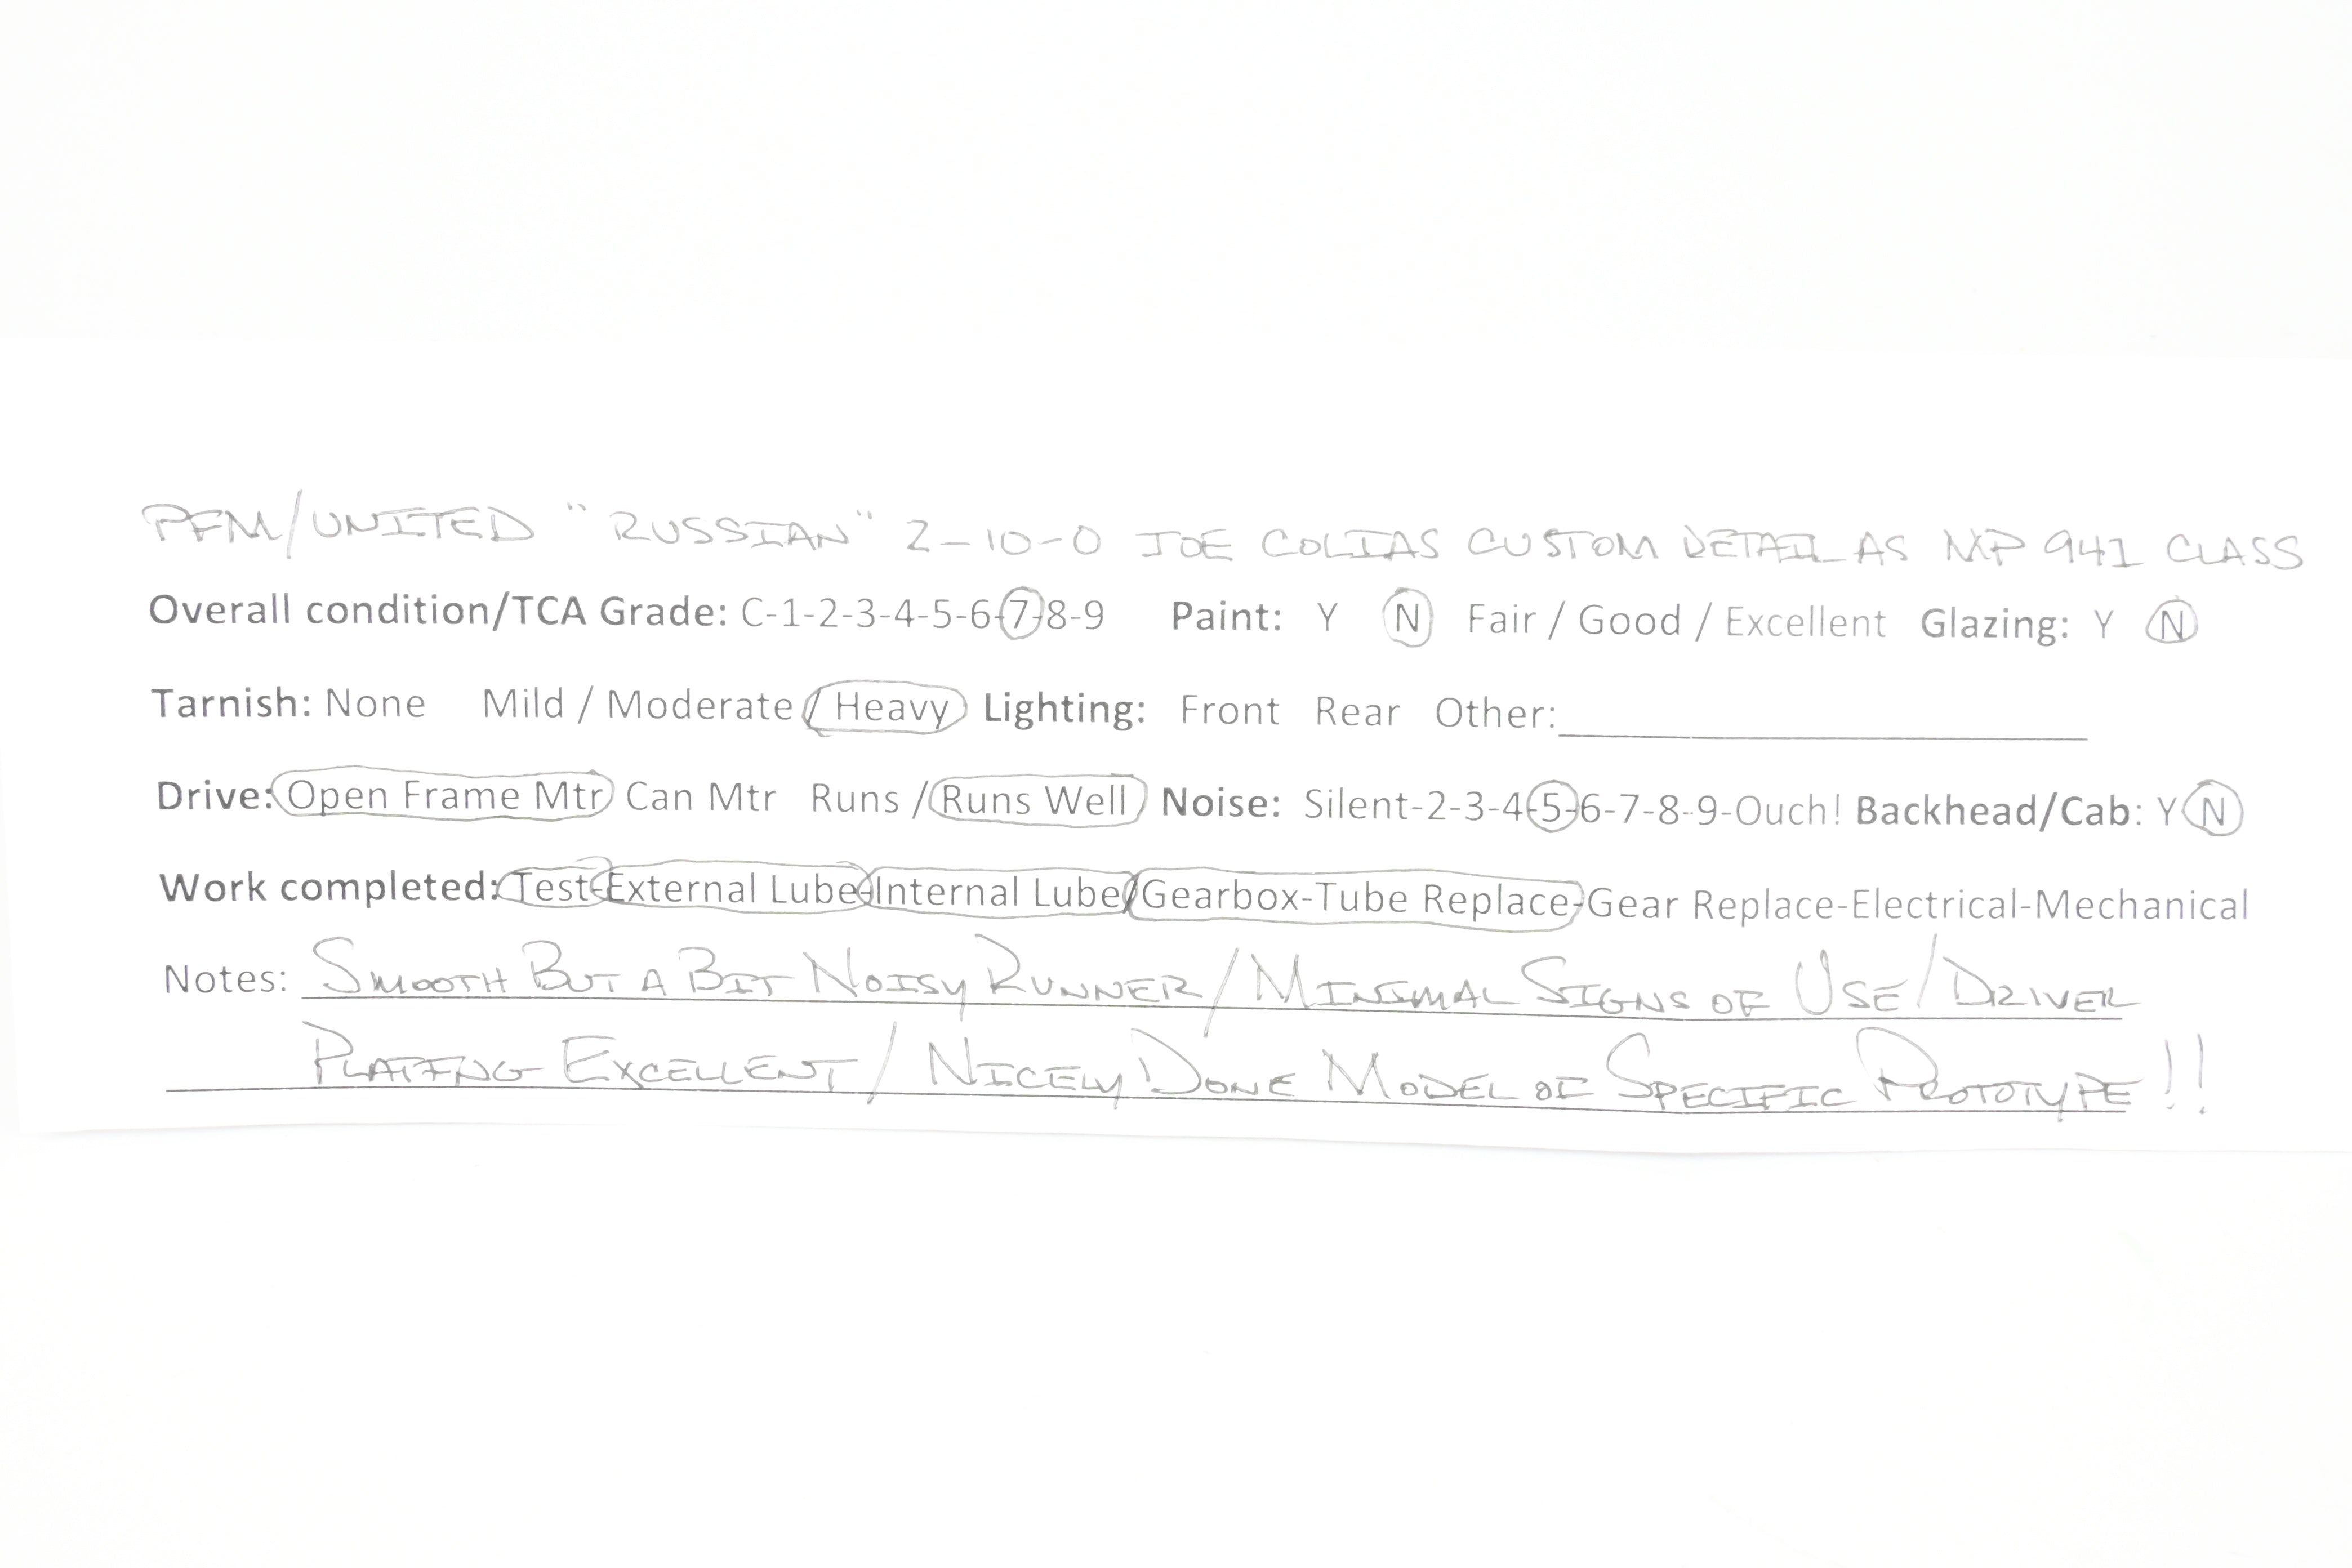 PFM/UNITED "RUSSIAN" 2-10-0 JOE COLIAS CUSTOM DETAIL AS MP 941 CLASS
Overall condition/TCA Grade: C-1-2-3-4-5-6-7-8-9 Paint: Y N Fair / Good / Excellent Glazing: Y N
Tarnish: None Mild / Moderate / Heavy Lighting: Front Rear Other:
Drive: Open Frame Mtr Can Mtr Runs / Runs Well Noise: Silent-2-3-4-5-6-7-8-9-Ouch! Backhead/Cab: Y N
Work completed: Test-External Lube-Internal Lube/Gearbox-Tube Replace-Gear Replace-Electrical-Mechanical
Notes: SMOOTH BUT A BIT NOISY RUNNER/MINIMAL SIGNS OF USE/DRIVER
PLATING EXCELLENT/NICELY DONE MODEL OF SPECIFIC PROTOTYPE!!